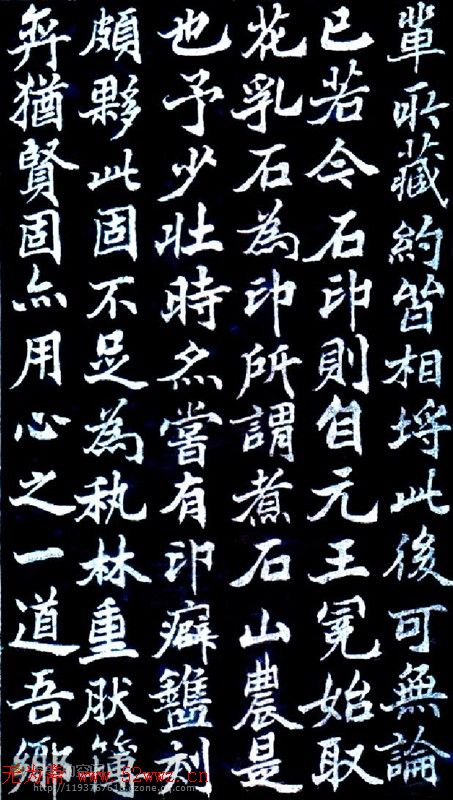 輩所藏約皆相埒此後可無論
已若今石印則自元王冕始取
花乳石為印所謂煮石山農是
也予少壯時亦嘗有印癖鐫刻
頗夥此固不足為秇林重肰簿
弈猶賢固亦用心之一道吾鄉
www.52wwz.cn